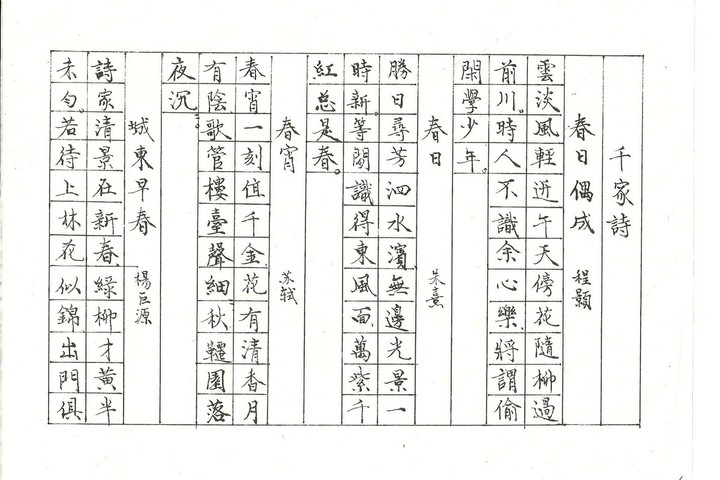 千家詩
春日偶成 程顥
雲淡風輕近午天傍花隨柳過
前川。時人不識余心樂將謂偷
閑學少年。
春日 朱熹
勝日尋芳泗水濱無邊光景一
時新。等閑識得東風面萬紫千
紅总是春。
春宵 苏轼
春宵一刻值千金花有清香月
有陰。歌管樓臺聲細秋韆園落
夜沉。
城東早春 楊巨源
詩家清景在新春綠柳才黃半
未匀。若待上林花似錦出門俱